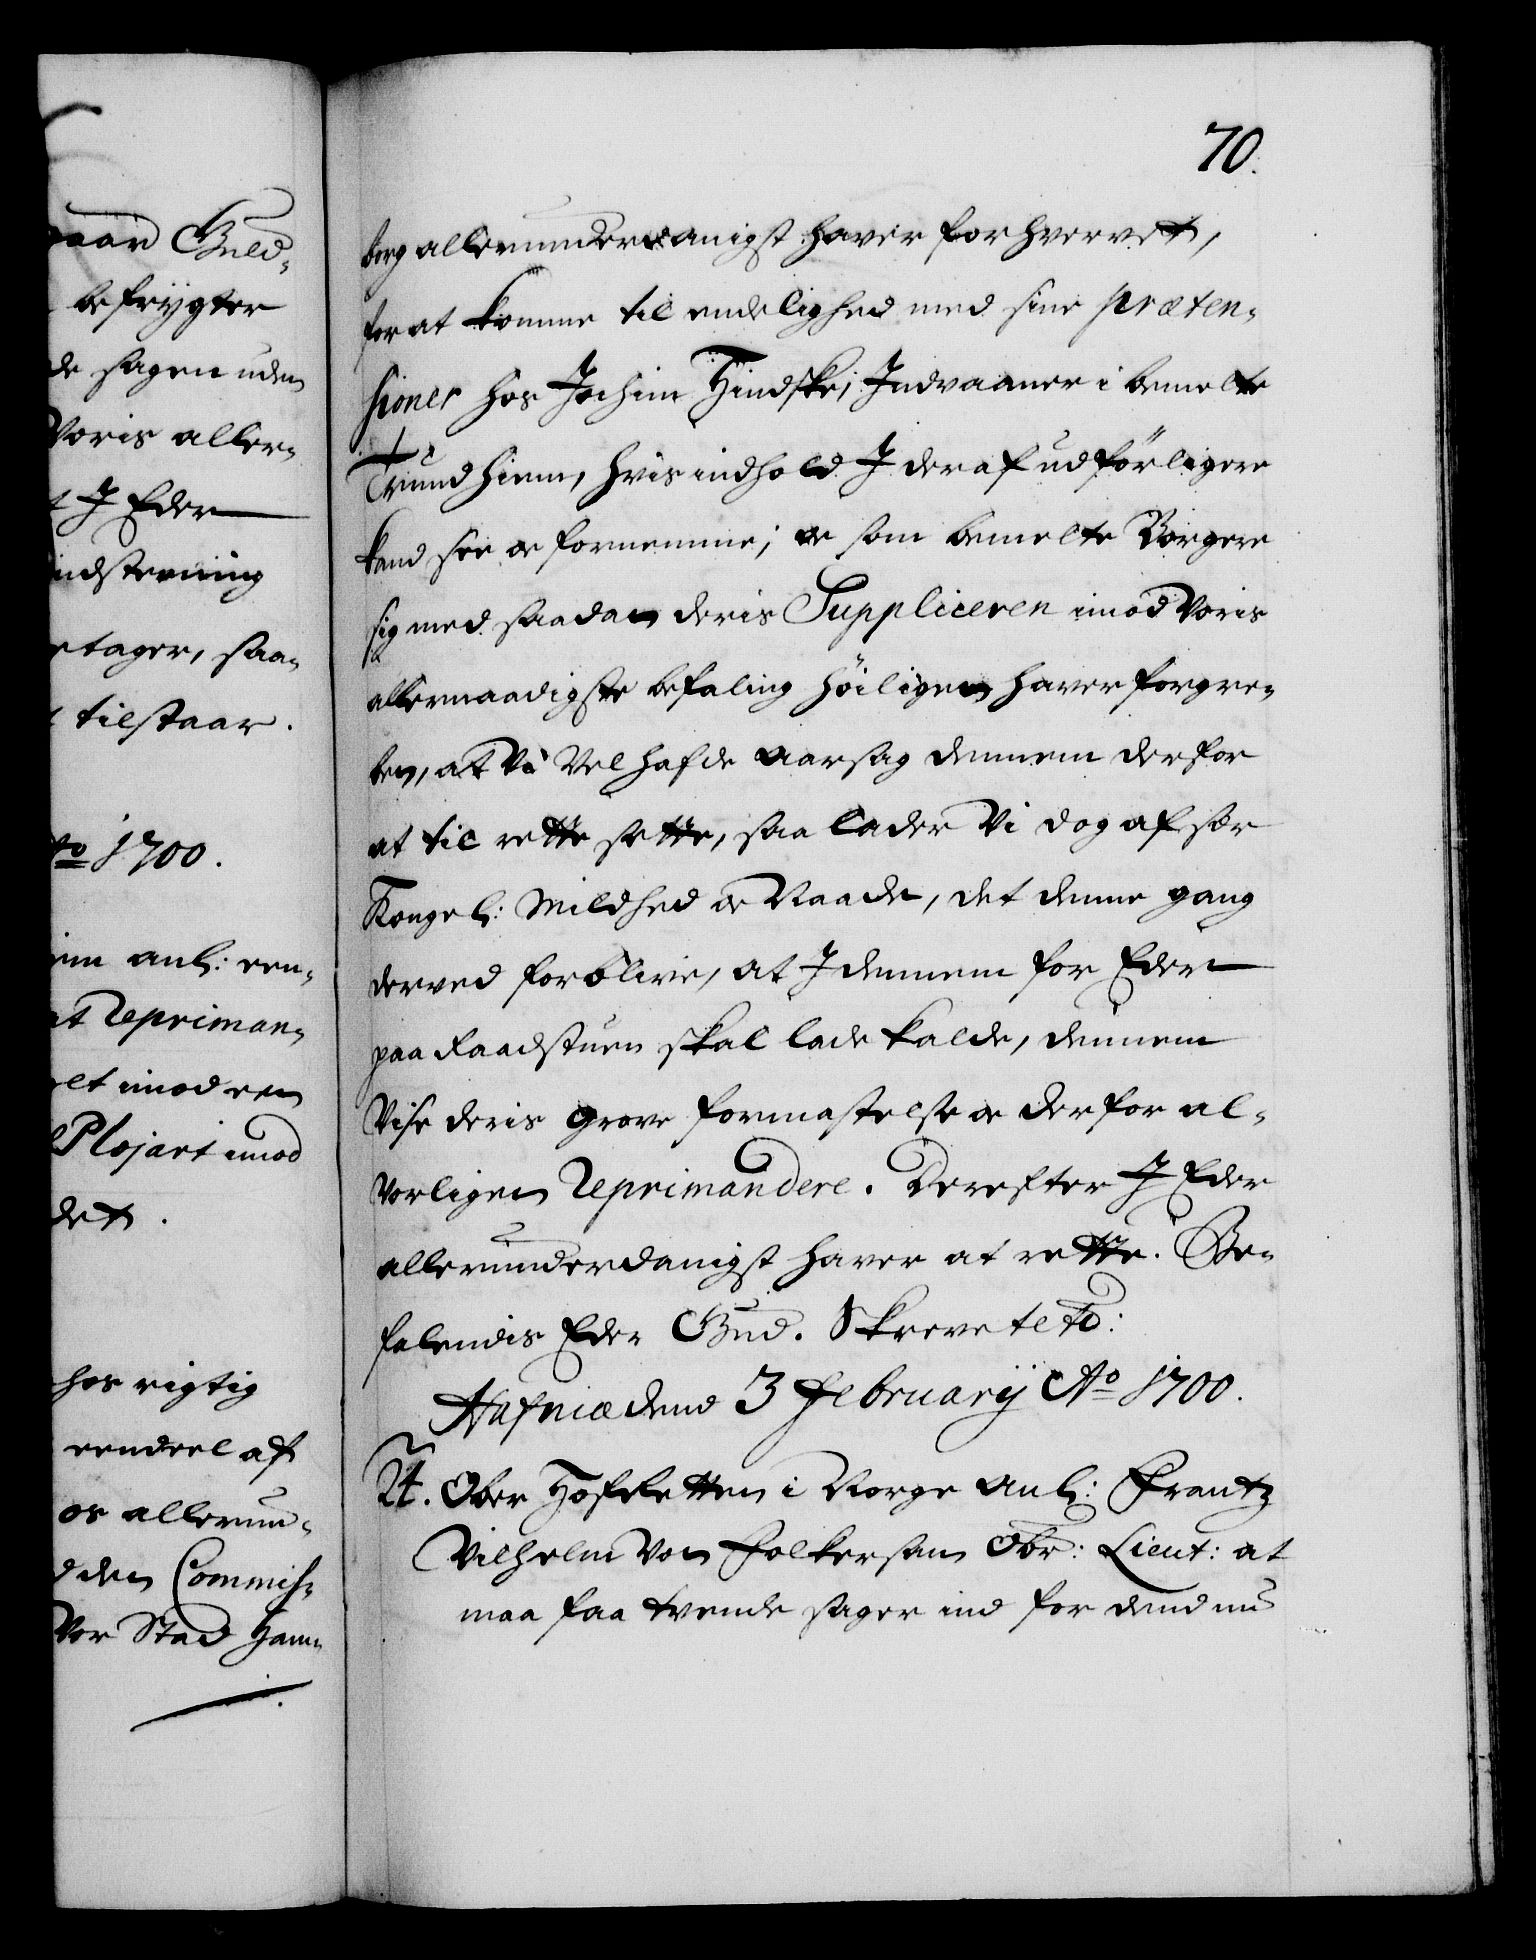 paar Guld-
befrÿgter
de sagen uden
Voris aller-
t I Eder
indsterning
etager, saa-
tilstaar.
to 1700.
iem anl: een-
at Repriman-
elt imod een
Plojart imod
det.
hos rigtig
eendeel af
os allerun-
d den Commis-
Vor Stad Ham-
70.
berg allerunderdanigst haver forhvervet,
for at komme til endelighed med sine præten-
sioner hos Jochim Hindske, Indvaaner i bemelte
Trundhiem, hvis indhold I deraf udförligere
kand see oc fornemme; oc som bemelte Borgere
sig med saadan deris Suppliceren imod Voris
allernaadigste befaling höiligen haver forgre-
ben, at Vi Vel hafde Aarsag dennem derfor
at til rette sette, saa lader Vi dog af sær
Kongel: Mildhed oc Naade, det denne gang
derved forblive, at I dennem for Eder
paa Raadstuen skal lade kalde, dennem
Vise deris grove formastelse oc derfor al-
vorligen Reprimandere. Derefter I Eder
allerunderdanigst haver at rette. Be-
falendis Eder Gud. Skrevet etc:
Hafniæ dend 3 Februarÿ Ao 1700.
24. Ober Hofretten i Norge Anl: Frantz
Vilhelm Von Folkersam Obr: Lieut: at
maa faa tvende sager ind for dend nu